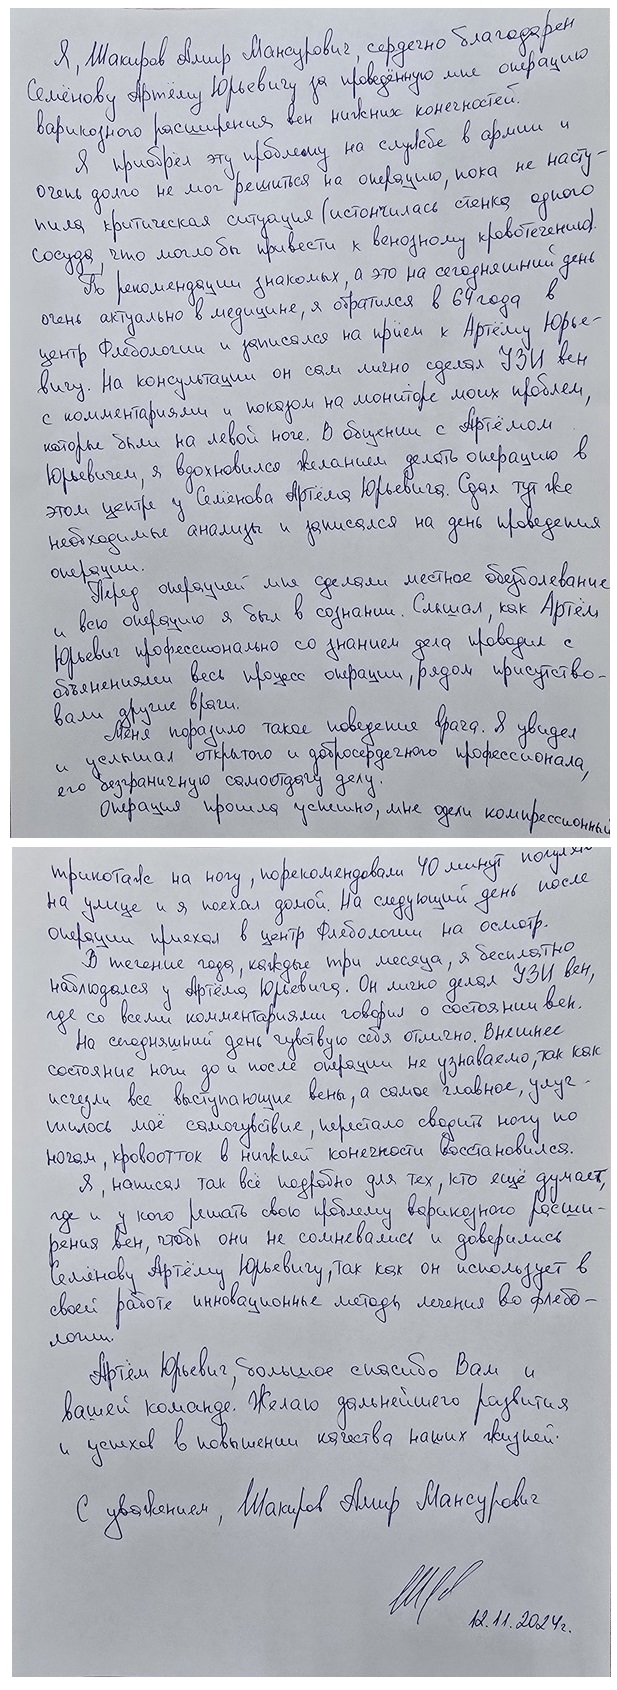 Я, Шакиров Амир Мансурович, сердечно благодарен
Семёнову Артёму Юрьевичу за проведённую мне операцию
варикозного расширения вен нижних конечностей.
Я приобрёл эту проблему на службе в армии и
очень долго не мог решиться на операцию, пока не насту-
пила критическая ситуация (истончилась стенка одного
сосуда, что могло бы привести к венозному кровотечению).
По рекомендации знакомых, а это на сегодняшний день
очень актуально в медицине, я обратился в 69 года в
центр Флебологии и записался на приём к Артёму Юрье-
вичу. На консультации он сам лично сделал УЗИ вен
с комментариями и показом на мониторе моих проблем,
которые были на левой ноге. В общении с Артёмом
Юрьевичем, я вдохновился желанием делать операцию в
этом центре у Семёнова Артёма Юрьевича. Сдал тут же
необходимые анализы и записался на день проведения
операции.
Перед операцией мне сделали местное обезболевание
и всю операцию я был в сознании. Слышал, как Артём
Юрьевич профессионально со знанием дела проводил с
объянениями весь процесс операции, рядом присутство-
вали другие врачи.
Меня поразило такое поведение врача. Я увидел
и услышал открытого и добросердечного профессионала,
его безграничную самоотдачу делу.
Операция прошла успешно, мне одели компрессионный
трикотаж на ногу, порекомендовали 40 минут погулять
на улице и я поехал домой. На следующий день после
операции приехал в центр Флебологии на осмотр.
В течение года, каждые три месяца, я бесплатно
наблюдался у Артёма Юрьевича. Он лично делал УЗИ вен,
где со всеми комментариями говорил о состоянии вен.
На сегодняшний день чувствую себя отлично. Внешнее
состояние ноги до и после операции не узнаваемо, так как
исчезли все выступающие вены, а самое главное, улуч-
шилось моё самочувствие, перестало сводить ногу по
ночам, кровоотток в нижней конечности восстановился.
Я, написал так всё подробно для тех, кто ещё думает,
где и у кого решать свою проблему варикозного расши-
рения вен, чтобы они не сомневались и доверились
Семёнову Артёму Юрьевичу, так как он использует в
своей работе инновационные методы лечения во флебо-
логии.
Артём Юрьевич, большое спасибо Вам и
вашей команде. Желаю дальнейшего развития
и успехов в повышении качества наших жизней.
С уважением, Шакиров Амир Мансурович
12.11.2024г.